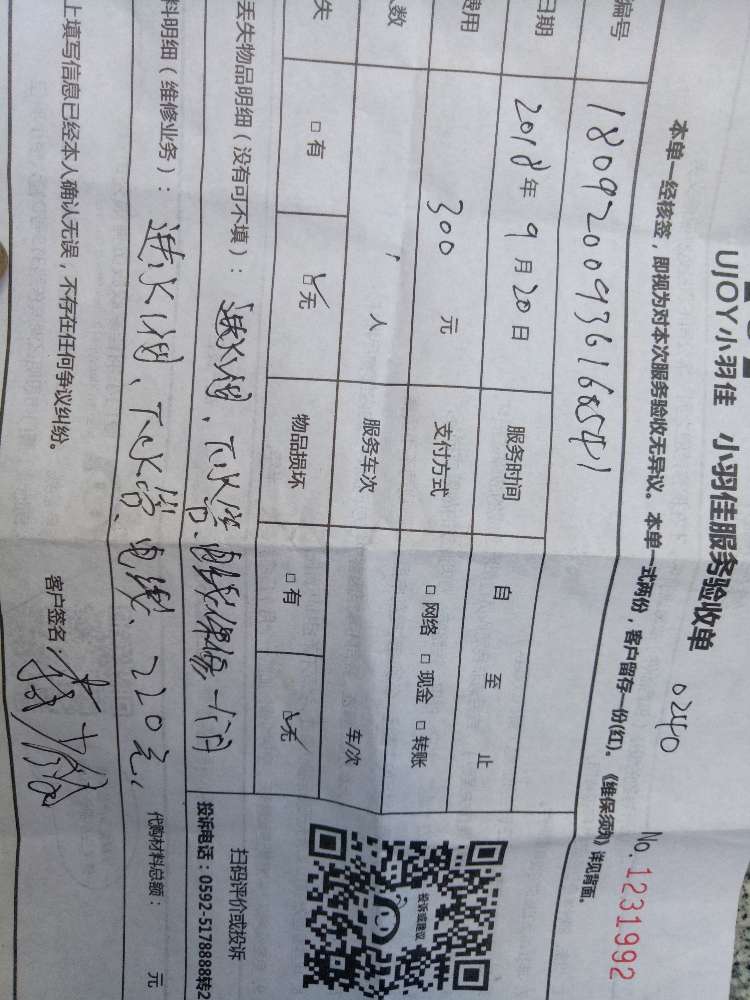 UJOY小羽佳 小羽佳服务验收单 0240
No.1231992
本单一经核签，即视为对本次服务验收无异议。本单一式两份，客户留存一份(红)。《维保须知》详见背面。
编号 1809200936168541
日期 2018年9月20日 服务时间 自 至 止
费用 300元 支付方式 □网络 □现金 □转账
数 1人 服务车次 车/次
失 □有 ☑无 物品损坏 □有 ☑无
丢失物品明细（没有可不填）：进水阀、下水管、电线保修一个月
料明细（维修业务）：进水阀、下水管、电线、220元，
代购材料总额： 元
上填写信息已经本人确认无误，不存在任何争议纠纷。
客户签名：
投诉或建议
扫码评价或投诉
投诉电话：0592-5178888转2